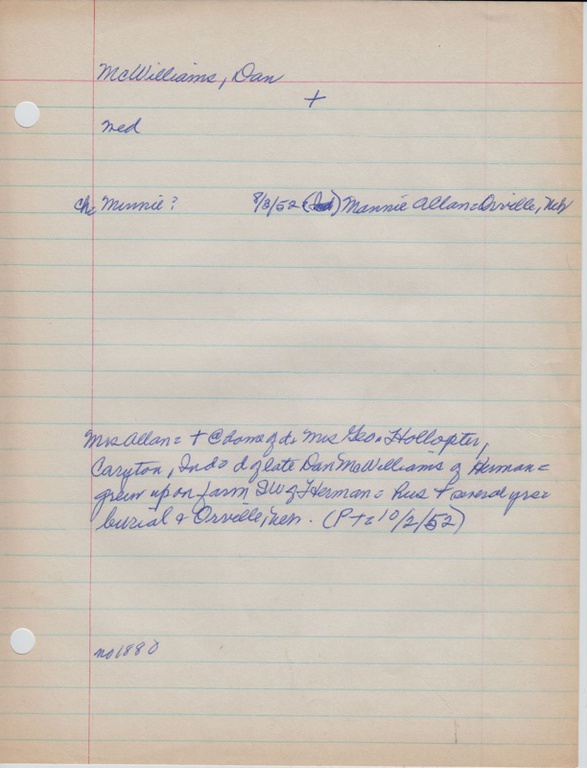 McWilliams, Dan
+
med
ch: Minnie? 8/3/52 Mannie Allan = Orville, Neb
Mrs Allan = + @ home of d. Mrs Geo. Hollopter,
Caryton, Ind = d of late Dan McWilliams of Herman =
grew up on farm SW of Herman = hus + several yrs =
burial @ Orville, Neb. (P+ = 10/2/52)
no 1880